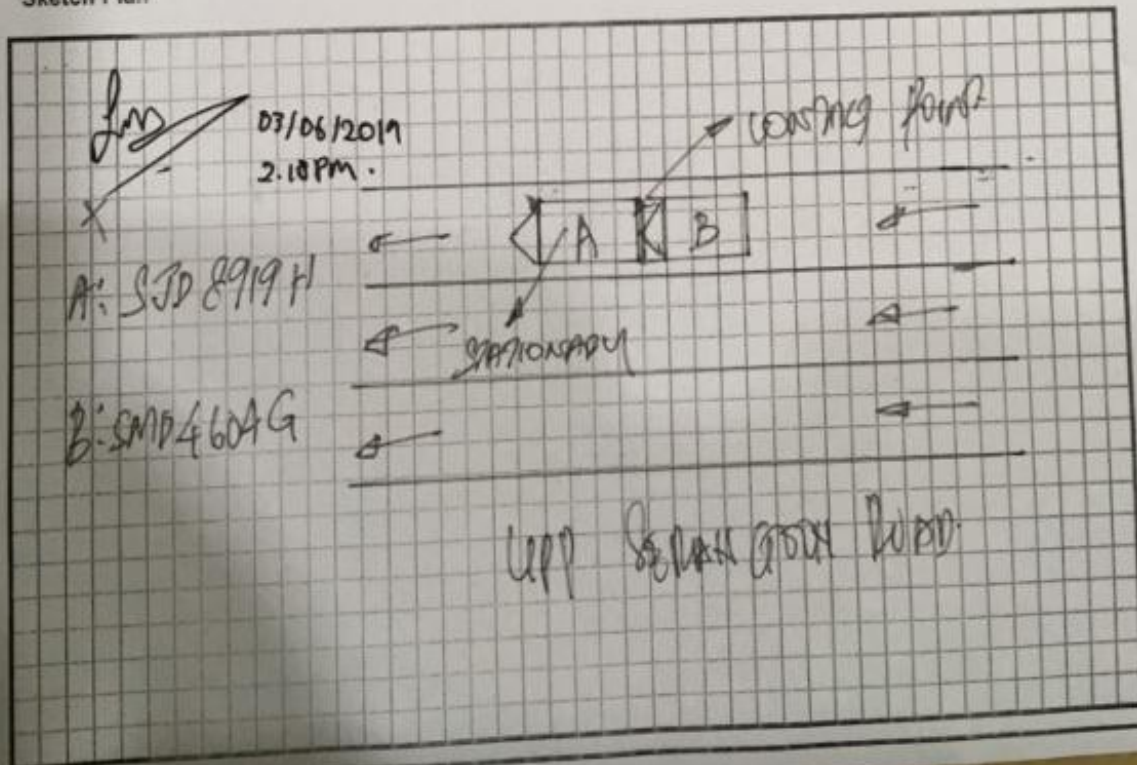 Sketch Plan
03/06/2019
2.10PM.
POINT
A: SJD 8919H
A
B
STATIONARY
B: SMD4604G
UPP SERANGOON ROAD.